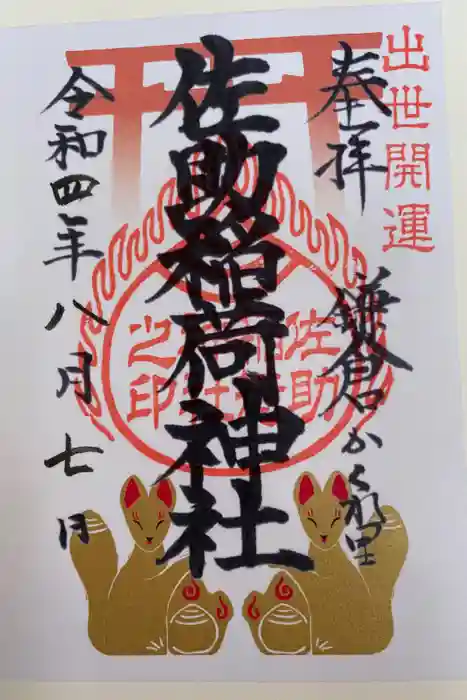 出世開運
奉拝
鎌倉かくれ里
佐助稲荷神社
佐助稲荷神社之印
令和四年八月七日